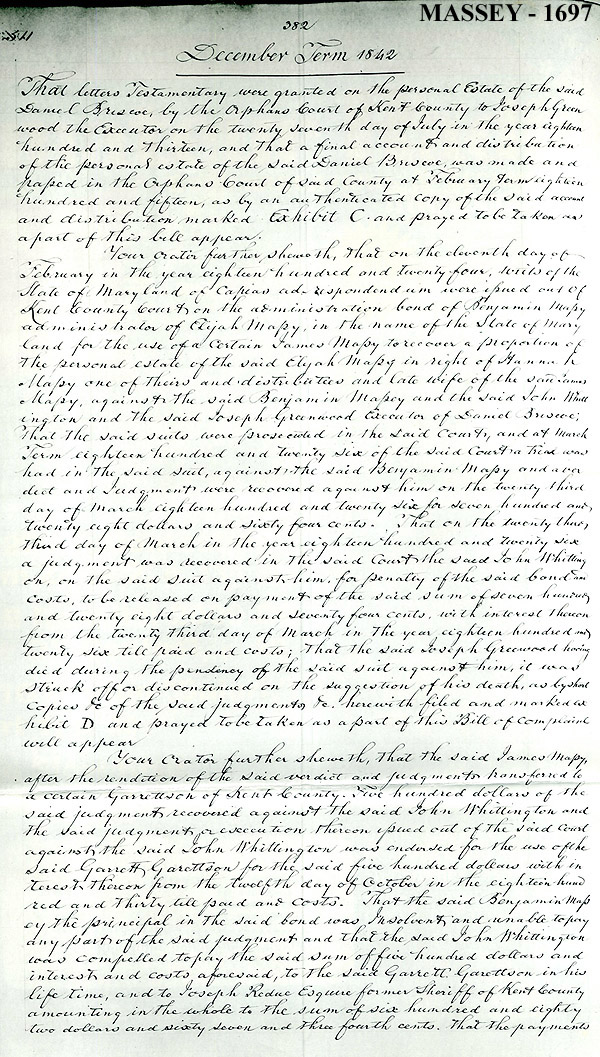 MASSEY - 1697
382
December Term 1842
That letters Testamentary were granted on the personal Estate of the said
Daniel Briscoe, by the Orphans Court of Kent County to Joseph Green
wood the Executor on the twenty seventh day of July in the year eighteen
hundred and thirteen, and that a final account and distribution
of the personal estate of the said Daniel Briscoe, was made and
passed in the Orphans Court of said County at February term eighteen
hundred and fifteen, as by an authenticated copy of the said account
and distribution marked Exhibit C. and prayed to be taken as
a part of this bill appear.
Your Orator further sheweth, that on the eleventh day of
February in the year eighteen hundred and twenty four, writs of the
State of Maryland of Capias ad respondendum were issued out of
Kent County Court, on the administration bond of Benjamin Massy
administrator of Elijah Massy, in the name of the State of Mary
land for the use of a Certain James Massy to recover a proportion of
the personal estate of the said Elijah Massy in right of Hannah
Massy one of theirs and distributees and late wife of the said James
Massy, against the said Benjamin Massey and the said John Whitt
ington and the said Joseph Greenwood Executor of Daniel Briscoe;
that the said suits were prosecuted in the said Court, and at March
Term eighteen hundred and twenty six of the said Court a trial was
had in the said suit, against the said Benjamin Massy and a ver
dict and Judgment were recovered against him on the twenty third
day of March eighteen hundred and twenty six for seven hundred and
twenty eight dollars and sixty four cents. That on the twenty three
third day of March in the year eighteen hundred and twenty six
a judgment was recovered in the said Court the said John Whitting
on, on the said suit against him, for penalty of the said bond and
costs, to be released on payment of the said sum of seven hundred
and twenty eight dollars and seventy four cents, with interest thereon
from the twenty third day of March in the year eighteen hundred and
twenty six till paid and costs; that the said Joseph Greenwood having
died during the pendency of the said suit against him, it was
struck off or discontinued on the suggestion of his death, as by short
Copies &c of the said judgments, &c. herewith filed and marked ex
hibit D and prayed to be taken as a part of this Bill of complaint
will appear
Your Orator further sheweth, that the said James Massy,
after the rendition of the said verdict and judgments transferred to
a certain Garrettson of Kent County. Five hundred dollars of the
said judgment, recovered against the said John Whittington and
the said judgment, or execution thereon issued out of the said Court
against, the said John Whittington was endorsed for the use of the
said Garrett Garettson for the said five hundred dollars with in
terest thereon from the twelfth day of October in the eighteen hund
red and thirty till paid and costs. That the said Benjamin Mass
ey the principal in the said bond was Insolvent and unable to pay
any part of the said judgment and that the said John Whittington
was compelled to pay the said sum of five hundred dollars and
interest and costs aforesaid, to the said Garrett Garettson in his
life time, and to Joseph Redue Esquire former Sheriff of Kent County
amounting in the whole to the sum of six hundred and eighty
two dollars and sixty seven and three fourth cents. that the payments